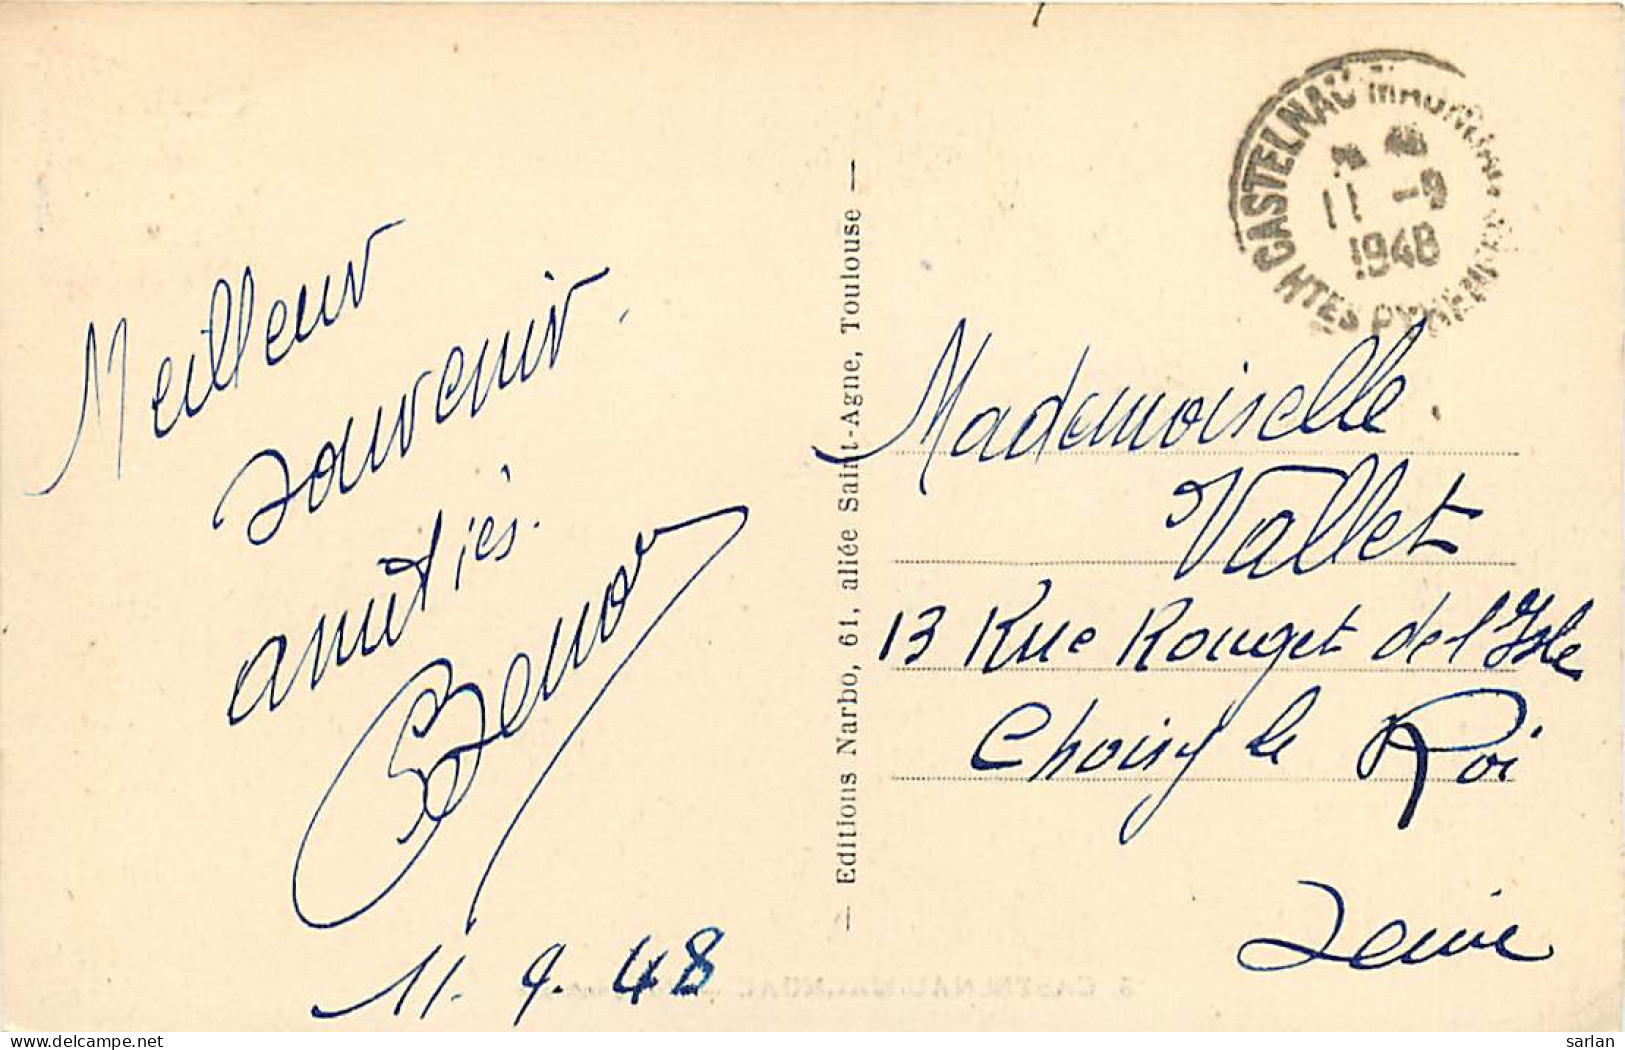 Meilleur
souvenir.
amitiés.
11. 9. 48
— Editions Narbo, 61, allée Saint-Agne, Toulouse —
CASTELNAU MAGNOAC
11 -9
1948
HTES PYRENEES
Mademoiselle
Vallet
13 Rue Rouget de l'Isle
Choisy le Roi
Seine
delcampe.net
sarlan